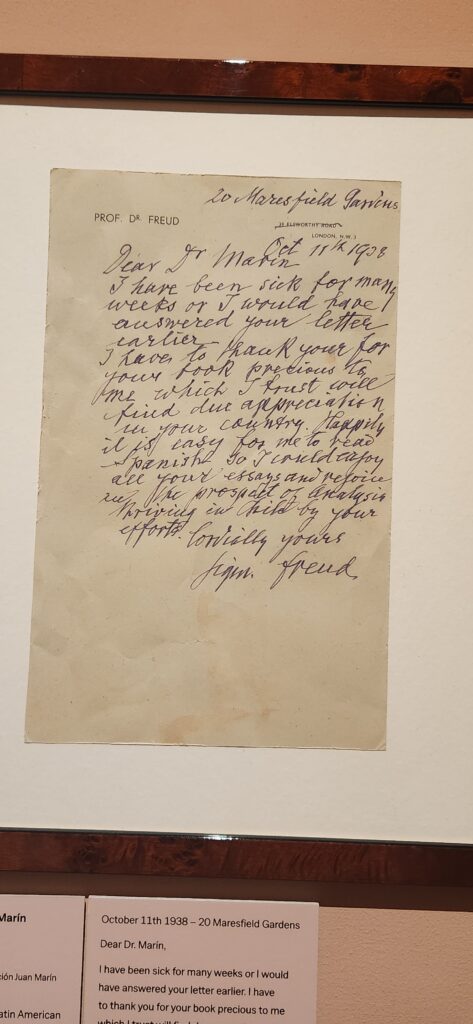 20 Maresfield Gardens
PROF. DR. FREUD
39 ELSWORTHY ROAD
LONDON, N.W. 3
Oct 11th 1938
Dear Dr Marin
I have been sick for many
weeks or I would have
answered your letter
earlier
I have to thank your for
your book precious to
me which I trust will
find due appreciation
in your country. Happily
it is easy for me to read
Spanish. So I could enjoy
all your essays and rejoice
in the prospect of Analysis
thriving in Chile by your
efforts.
Cordially yours
Sigm. Freud
Marín
ción Juan Marín
atin American
October 11th 1938 – 20 Maresfield Gardens
Dear Dr. Marín,
I have been sick for many weeks or I would
have answered your letter earlier. I have
to thank you for your book precious to me
which I trust will find